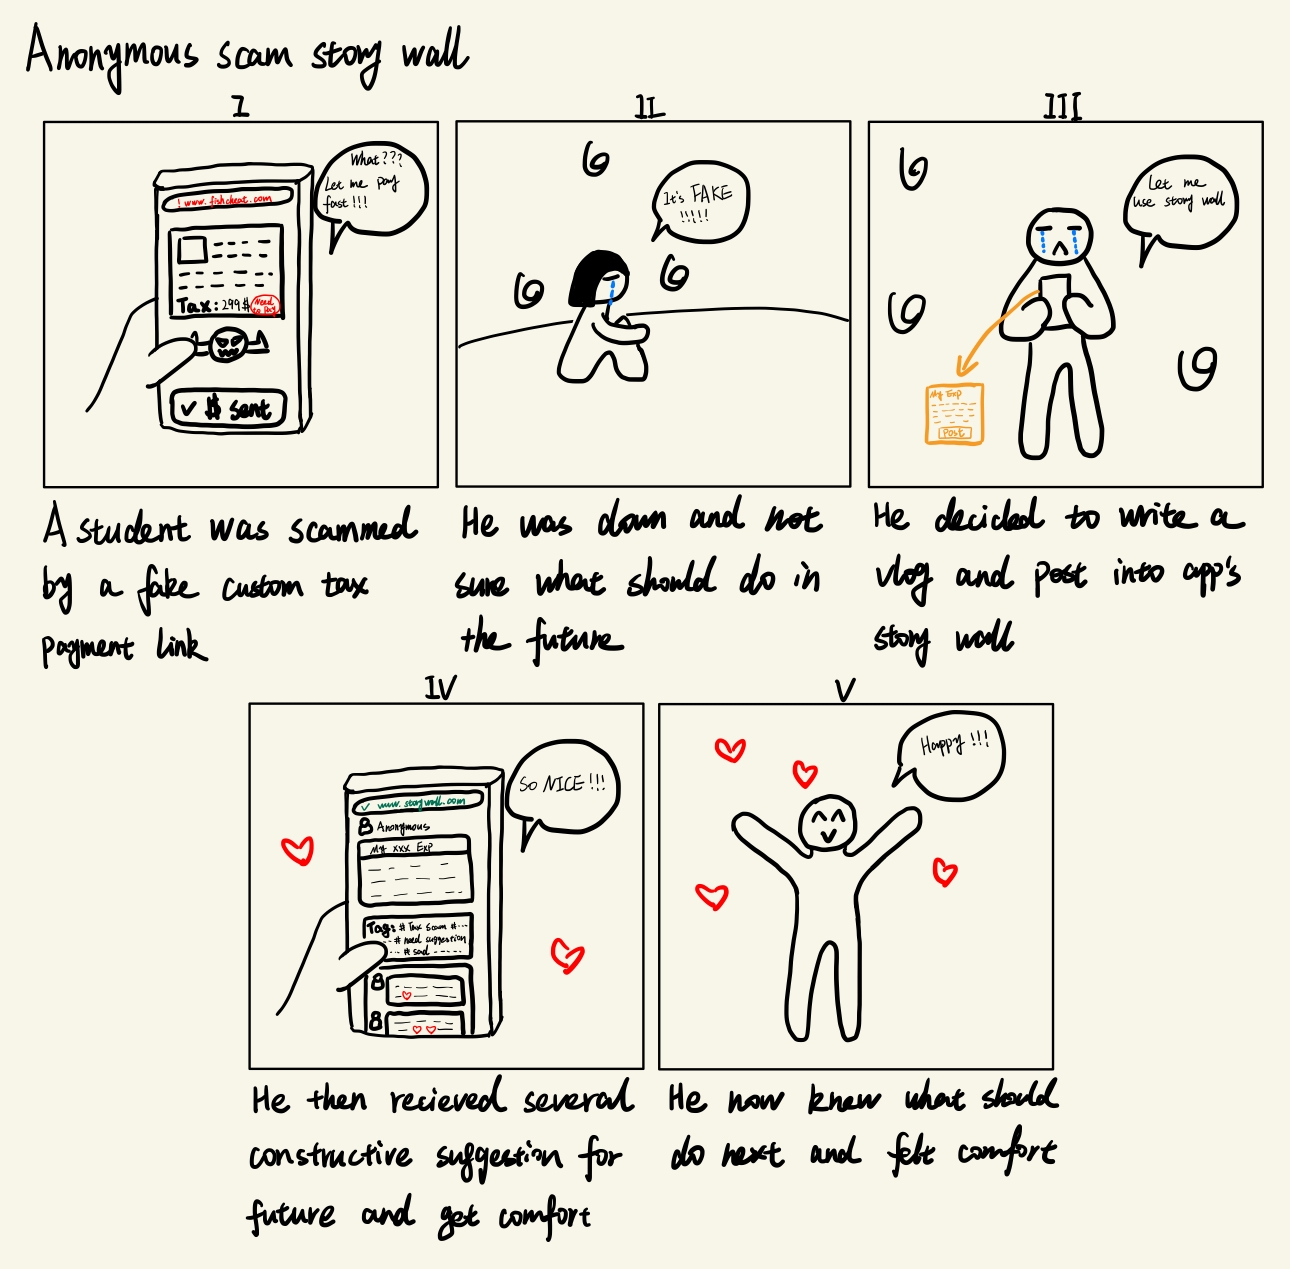 Anonymous scam story wall
I
! www.fishcheat.com
Tax: 299$
Need
to pay
✓ $ sent
What???
Let me pay
fast!!!
A student was scammed
by a fake custom tax
payment link
II
It's FAKE
!!!!!
He was down and not
sure what should do in
the future
III
Let me
use story wall
My Exp
Post
He decided to write a
vlog and post into app's
story wall
IV
✓ www.storywall.com
Anonymous
My xxx Exp
Tag: # Tax scam #
# need suggestion
# sad
So NICE!!!
He then recieved several
constructive suggestion for
future and get comfort
V
Happy!!!
He now knew what should
do next and felt comfort